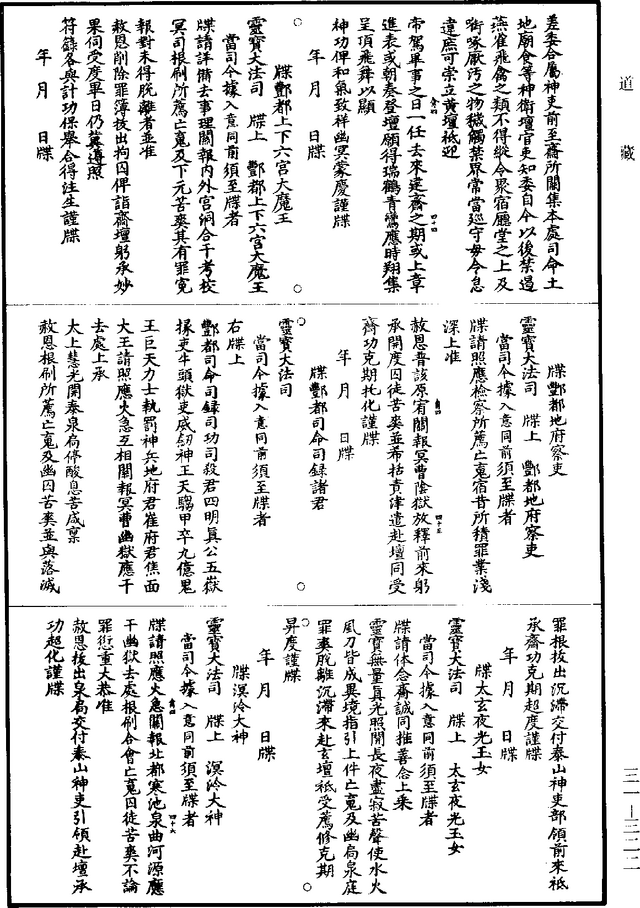 道藏
差委合屬神吏前至齋所關集本處司命土
地廟食等神衛壇官吏知委自今以後禁遏
燕雀飛禽之類不得縱令聚宿廳堂之上及
銜啄厭污之物穢觸禁界常當巡守毋令怠
違庶可崇立黃壇祗迎
帝駕畢事之日一任去來建齋之期或上章
進表或朝奏登壇願得瑞鶴青鸞應時翔集
呈頂飛舞以顯
神功俾和氣致祥幽冥蒙慶謹牒
年　月　日牒
牒酆都上下六宮大魔王
靈寶大法司　牒上　酆都上下六宮大魔王
當司今據入意同前須至牒者
牒請詳衝去事理關報內外宮洞合干考校
冥司根刷所薦亡䰟及下元苦爽其有罪冤
報對未得脫離者並准
赦恩削除罪簿拔出拘囚俾詣齋壇躬承妙
果伺受度畢日仍冀遵照
符籙各與計功保舉合得注生謹牒
年　月　日牒
牒酆都地府察吏
靈寶大法司　牒上　酆都地府察吏
當司今據入意同前須至牒者
牒請照應檢察所薦亡䰟宿昔所積罪業淺
深上准
赦恩普該原宥關報冥曹陰獄放釋前來躬
承開度囚徒苦爽並希括責津遣赴壇同受
齋功克期托化謹牒
年　月　日牒
牒酆都司命司錄諸君
靈寶大法司
當司今據入意同前須至牒者
右牒上
酆都司命司錄司功司殺君四明真公五嶽
掾吏牛頭獄吏威劒神王天騶甲卒九億鬼
王巨天力士執罰神兵地府君崔府君焦面
大王請照應火急互相關報冥曹幽獄應干
去處上承
太上慧光開泰泉扃停酸息苦咸稟
赦恩根刷所薦亡䰟及幽囚苦爽並與落滅
罪根拔出沉滯交付泰山神吏部領前來祗
承齋功克期超度謹牒
年　月　日牒
牒太玄夜光玉女
靈寶大法司　牒上　太玄夜光玉女
當司今據入意同前須至牒者
牒請体念齋誠同推善念上乘
靈寶無量真光照開長夜盡寂苦聲使水火
風刀皆成異境指引上件亡䰟及幽扃泉庭
罪爽脫離沉滯來赴玄壇祗受薦修克期
昇度謹牒
年　月　日牒
牒溟泠大神
靈寶大法司　牒上　溟泠大神
當司今據入意同前須至牒者
牒請照應火急關報北都寒池泉曲河源應
干幽獄去處根刷合會亡䰟囚徒苦爽不論
罪愆重大恭准
赦恩拔出泉扃交付泰山神吏引領赴壇承
功超化謹牒
三一—三二二